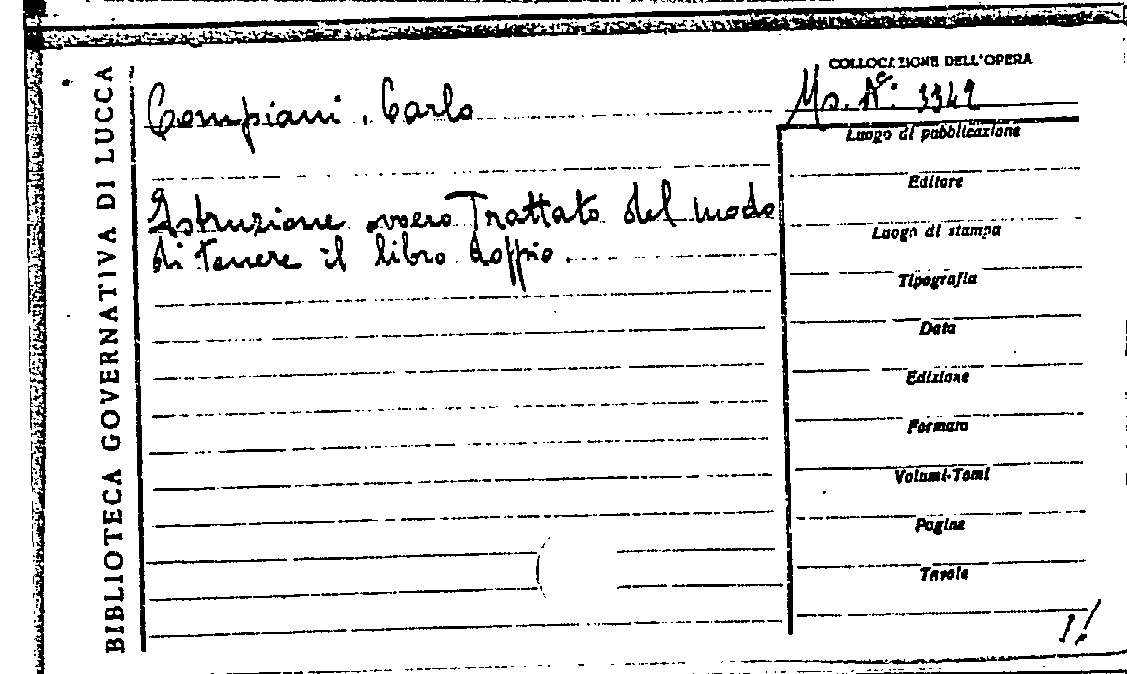 BIBLIOTECA GOVERNATIVA DI LUCCA
Compiani, Carlo
Istruzione ovvero Trattato del modo
di tenere il libro doppio.
COLLOCAZIONE DELL'OPERA
Ms. N°: 3342
Luogo di pubblicazione
Editore
Luogo di stampa
Tipografia
Data
Edizione
Formato
Volumi-Tomi
Pagine
Tavole